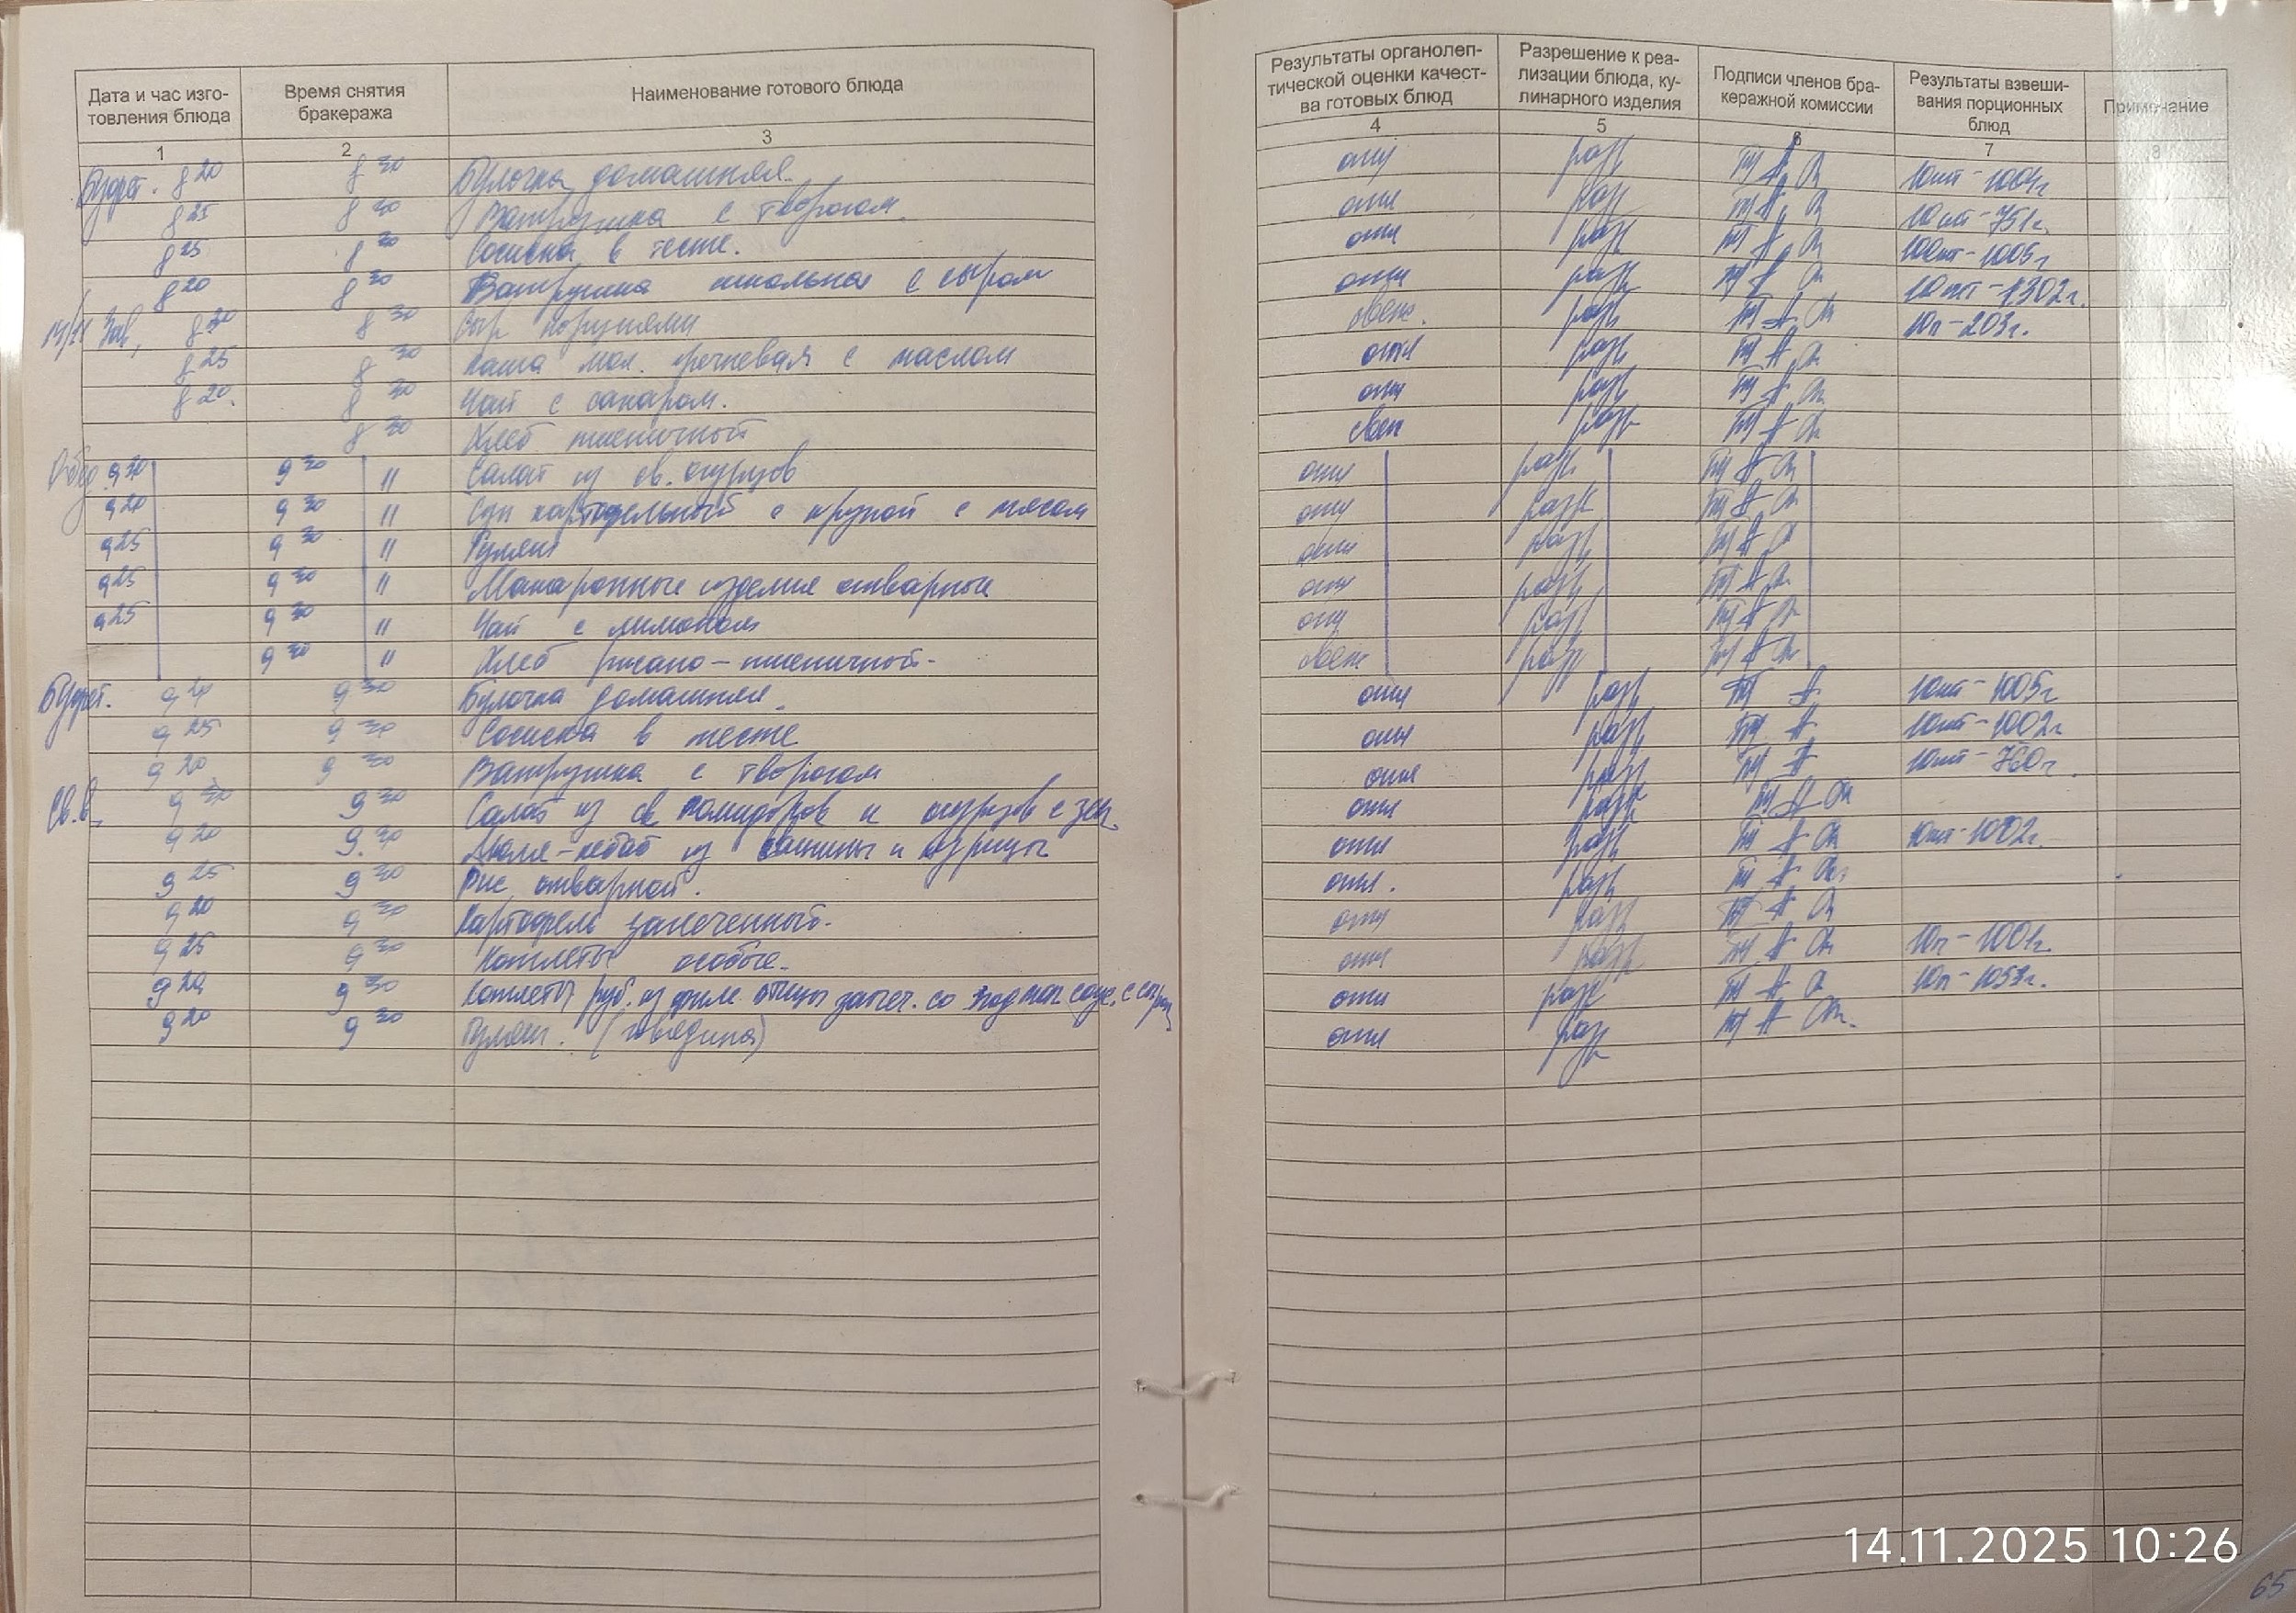 Дата и час изго-
товления блюда
Время снятия
бракеража
Наименование готового блюда
Результаты органолеп-
тической оценки качест-
ва готовых блюд
Разрешение к реа-
лизации блюда, ку-
линарного изделия
Подписи членов бра-
керажной комиссии
Результаты взвеши-
вания порционных
блюд
Примечание
1 2 3 4 5 6 7 8
Буфет. 8 20 8 30 Булочка домашняя. отл разр 10шт-1004г
8 25 8 30 Ватрушка с творогом. отл разр 10шт-751г.
8 25 8 30 Сосиска в тесте. отл разр 1005г
8 20 8 30 Ватрушка школьная с сыром отл разр 10шт-1302г.
Зав, 8 20 8 30 Сыр порциями свеж. разр 10п-203г.
8 25 8 30 Каша мол. гречневая с маслом отл разр
8 20. 8 30 Чай с сахаром. отл разр
8 30 Хлеб пшеничный свеж разр
Обед. 9 20 9 30 " Салат из св. огурцов отл разр
9 20 9 30 " Суп картофельный с крупой с мясом отл разр
9 25 9 30 " Гуляш отл разр
9 25 9 30 " Макаронные изделия отварные отл разр
9 25 9 30 " Чай с лимоном отл разр
9 30 " Хлеб ржано-пшеничный. свеж разр
Буфет. 9 20 9 30 Булочка домашняя. отл разр 10шт-1005г
9 25 9 30 Сосиска в тесте отл разр 10шт-1002г
9 20 9 30 Ватрушка с творогом отл разр 10шт-760г.
Св.в. 9 20 9 30 Салат из св. помидоров и огурцов с зел. отл разр
9 20 9 30 Люля-кебаб из свинины и курицы отл разр 10шт-1002г.
9 25 9 30 Рис отварной. отл. разр
9 20 9 30 Картофель запеченный. отл разр
9 25 9 30 Котлеты особые. отл разр 10п-1001г.
9 20 9 30 Котлеты руб. из филе птицы запеч. со мол. соус. с сыром отл разр 10п-1053г.
9 20 9 30 Гуляш. (говядина) отл разр
14.11.2025 10:26
65